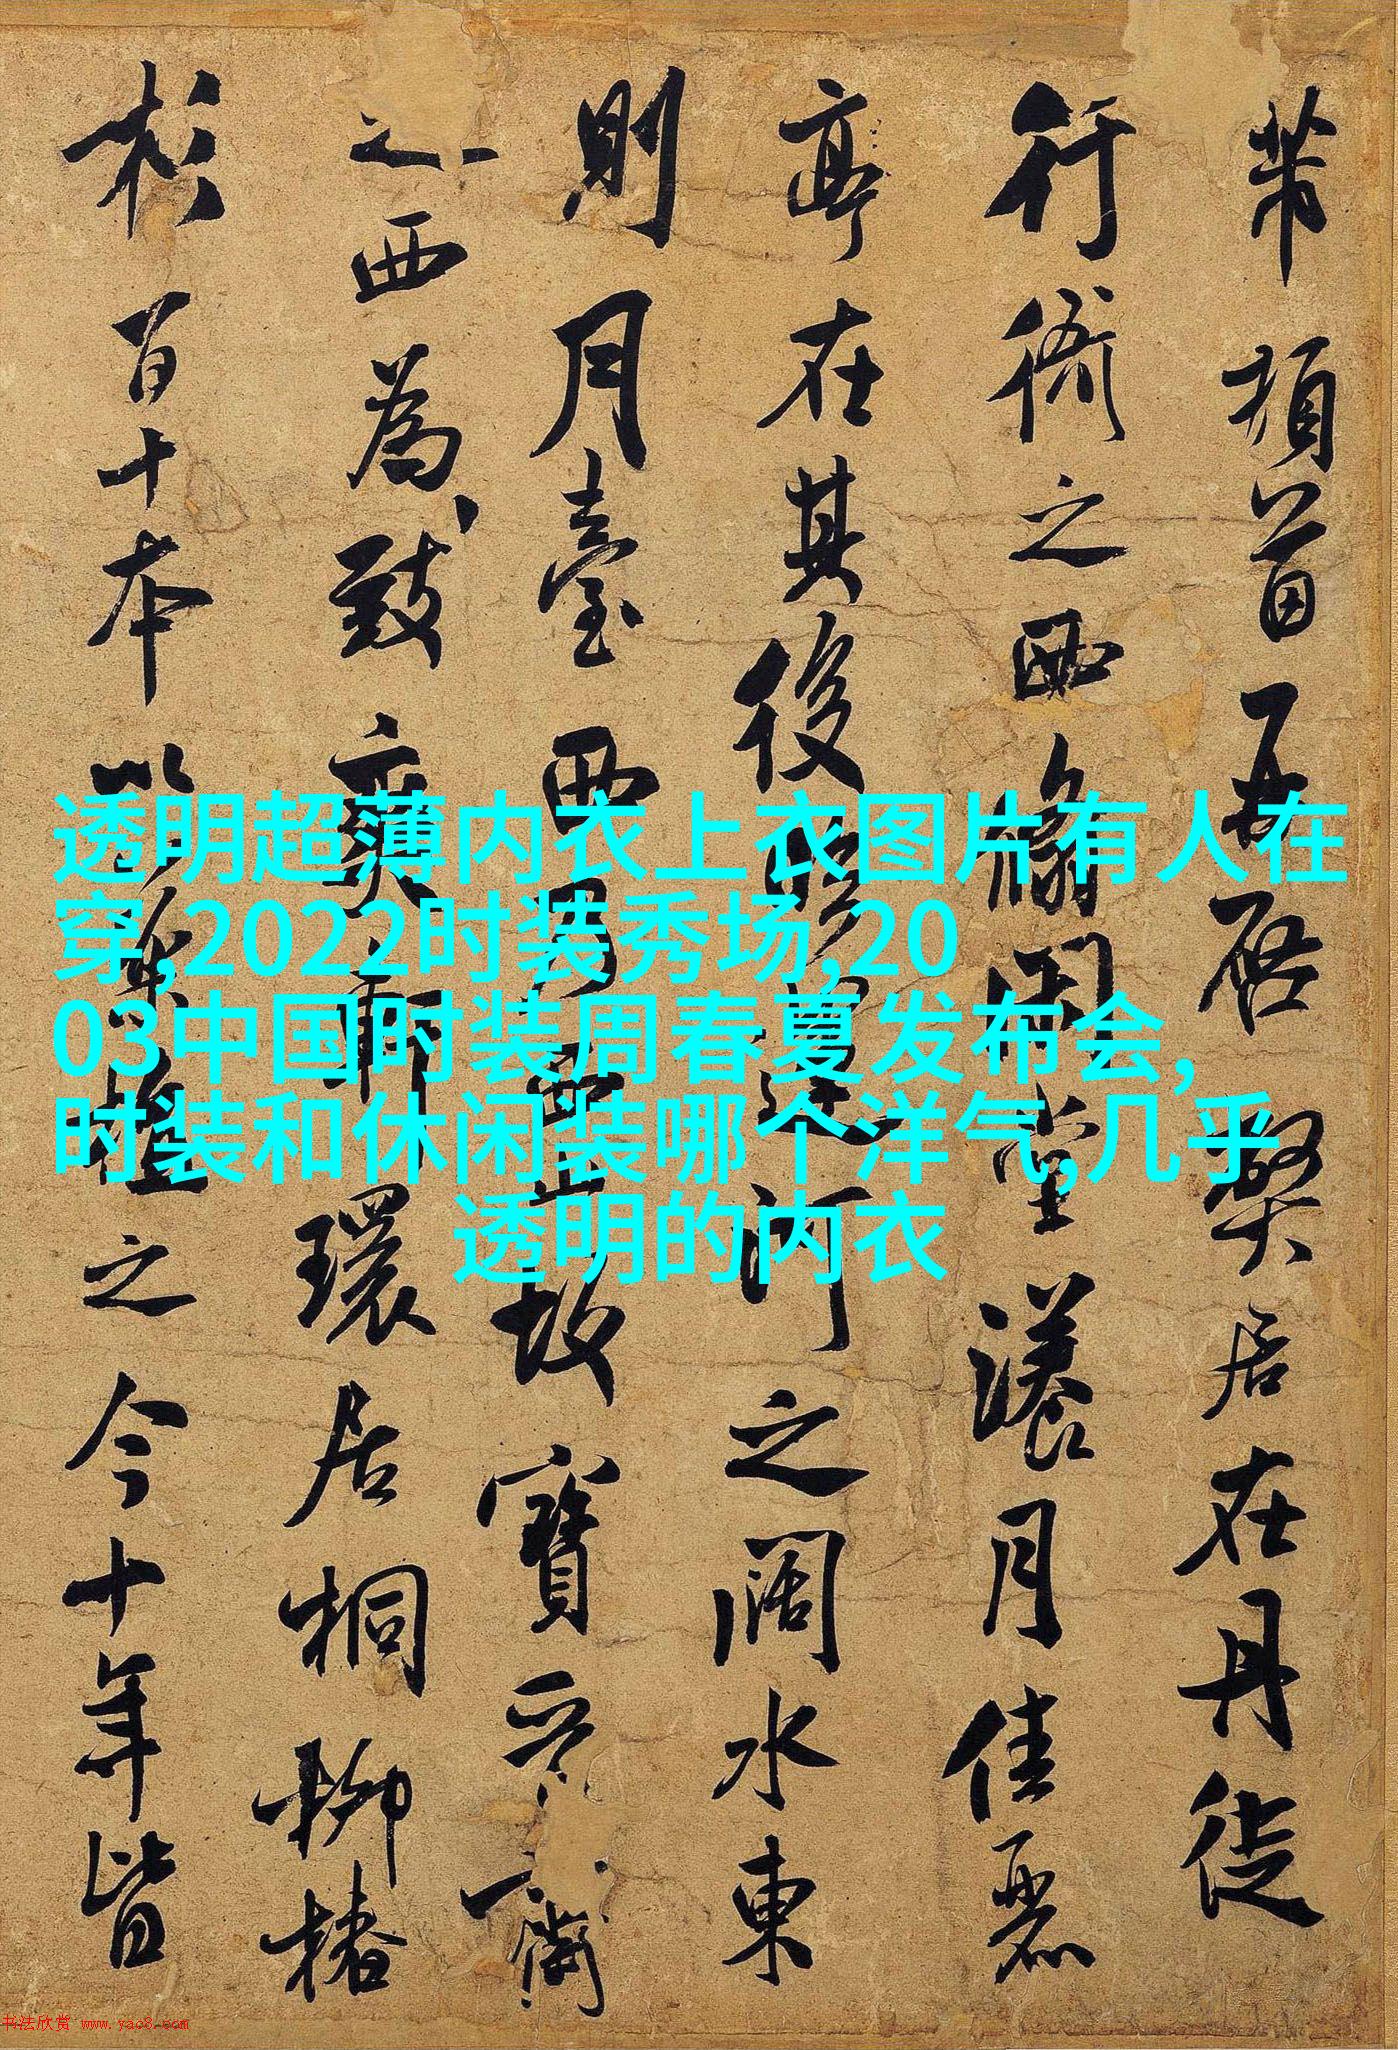 芾頓首再啟弊居在丹徒
行衙之西翛閑堂漾月佳麗
亭在其後臨運河之闊水東
則月臺西乃西山故寶晉齋
之西為致爽軒環居桐柳椿
杉百十本以藥植之今十年皆
透明超薄内衣上衣图片有人在
穿,2022时装秀场,20
03中国时装周春夏发布会,
时装和休闲装哪个洋气,几乎
透明的内衣
书法欣赏 www.yac8.com